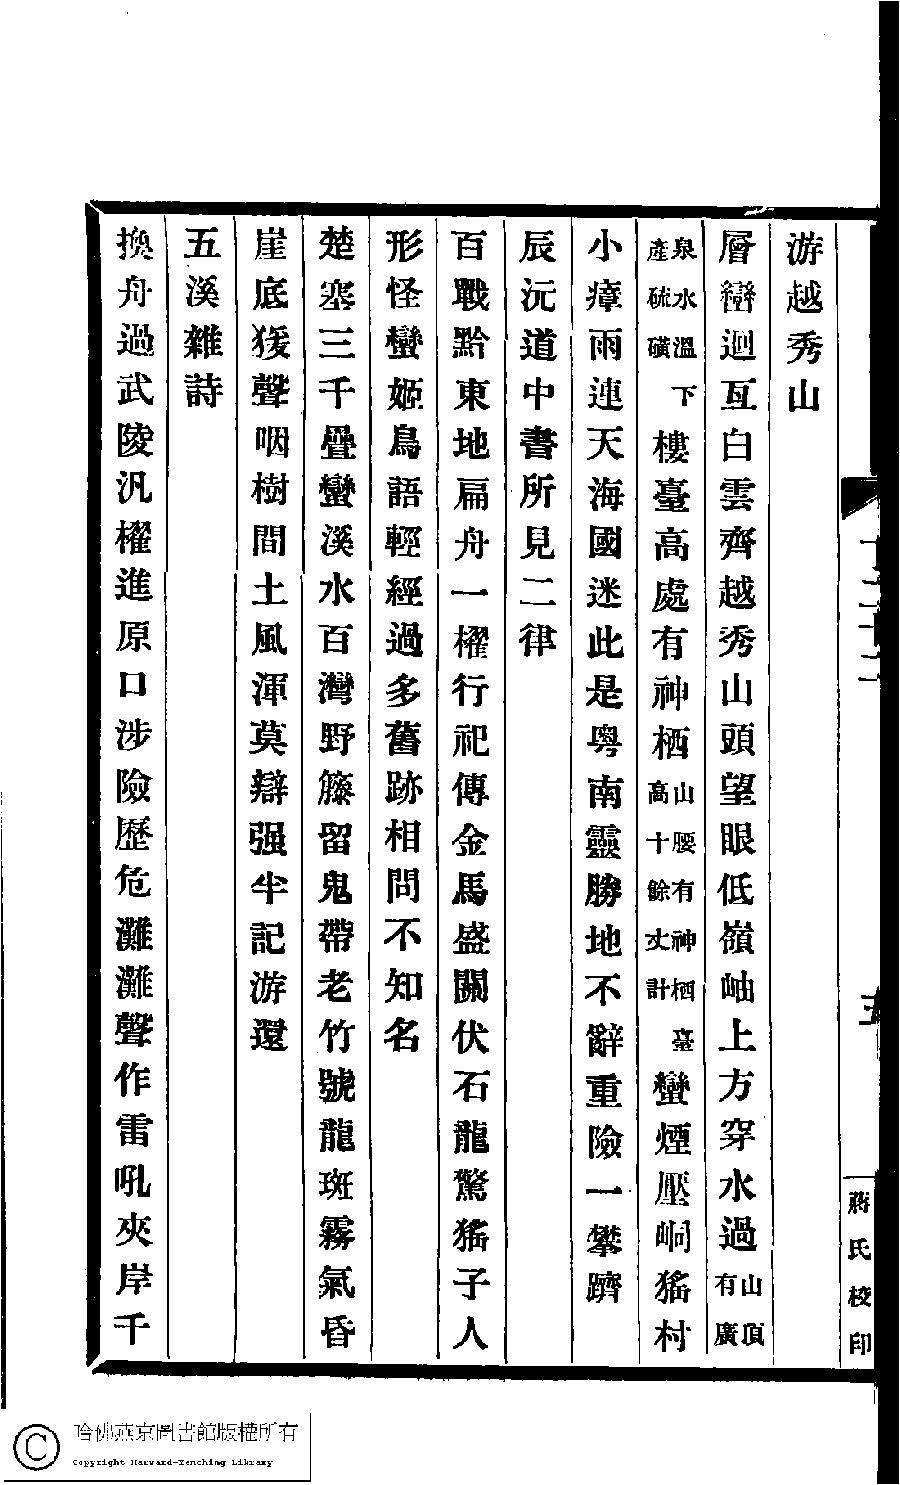 游越秀山
層巒迴亙白雲齊越秀山頭望眼低嶺岫上方穿水過山頂有廣
泉水溫產硫磺下樓臺高處有神栖山腰有神栖臺高十餘丈計蠻煙壓峒猺村
小瘴雨連天海國迷此是粵南靈勝地不辭重險一攀躋
辰沅道中書所見二律
百戰黔東地扁舟一櫂行祀傳金馬盛關伏石龍驚猺子人
形怪蠻姬鳥語輕經過多舊跡相問不知名
楚塞三千疊蠻溪水百灣野籐留鬼帶老竹號龍斑霧氣昏
崖底猨聲咽樹間土風渾莫辯强半記游還
五溪雜詩
換舟過武陵汎櫂進原口涉險歷危灘灘聲作雷吼夾岸千
蔣氏校印
哈佛燕京圖書館版權所有
Copyright Harvard-Yenching Library